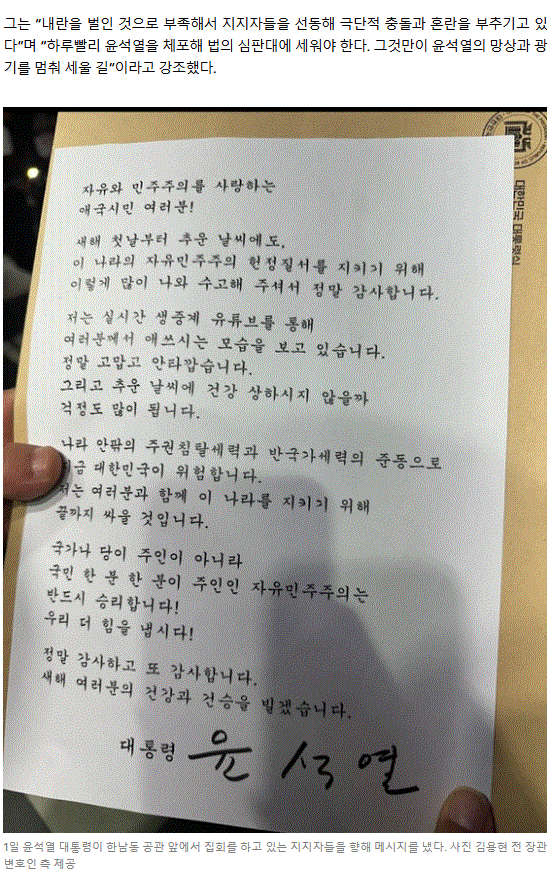 그는 “내란을 벌인 것으로 부족해서 지지자들을 선동해 극단적 충돌과 혼란을 부추기고 있
다”며 “하루빨리 윤석열을 체포해 법의 심판대에 세워야 한다. 그것만이 윤석열의 망상과 광
기를 멈춰 세울 길”이라고 강조했다.
대한민국 대통령실
자유와 민주주의를 사랑하는
애국시민 여러분!
새해 첫날부터 추운 날씨에도,
이 나라의 자유민주주의 헌정질서를 지키기 위해
이렇게 많이 나와 수고해 주셔서 정말 감사합니다.
저는 실시간 생중계 유튜브를 통해
여러분께서 애쓰시는 모습을 보고 있습니다.
정말 고맙고 안타깝습니다.
그리고 추운 날씨에 건강 상하시지 않을까
걱정도 많이 됩니다.
나라 안팎의 주권침탈세력과 반국가세력의 준동으로
지금 대한민국이 위험합니다.
저는 여러분과 함께 이 나라를 지키기 위해
끝까지 싸울 것입니다.
국가나 당이 주인이 아니라
국민 한 분 한 분이 주인인 자유민주주의는
반드시 승리합니다!
우리 더 힘을 냅시다!
정말 감사하고 또 감사합니다.
새해 여러분의 건강과 건승을 빌겠습니다.
대통령 윤 석 열
1일 윤석열 대통령이 한남동 공관 앞에서 집회를 하고 있는 지지자들을 향해 메시지를 냈다. 사진 김용현 전 장관
변호인 측 제공